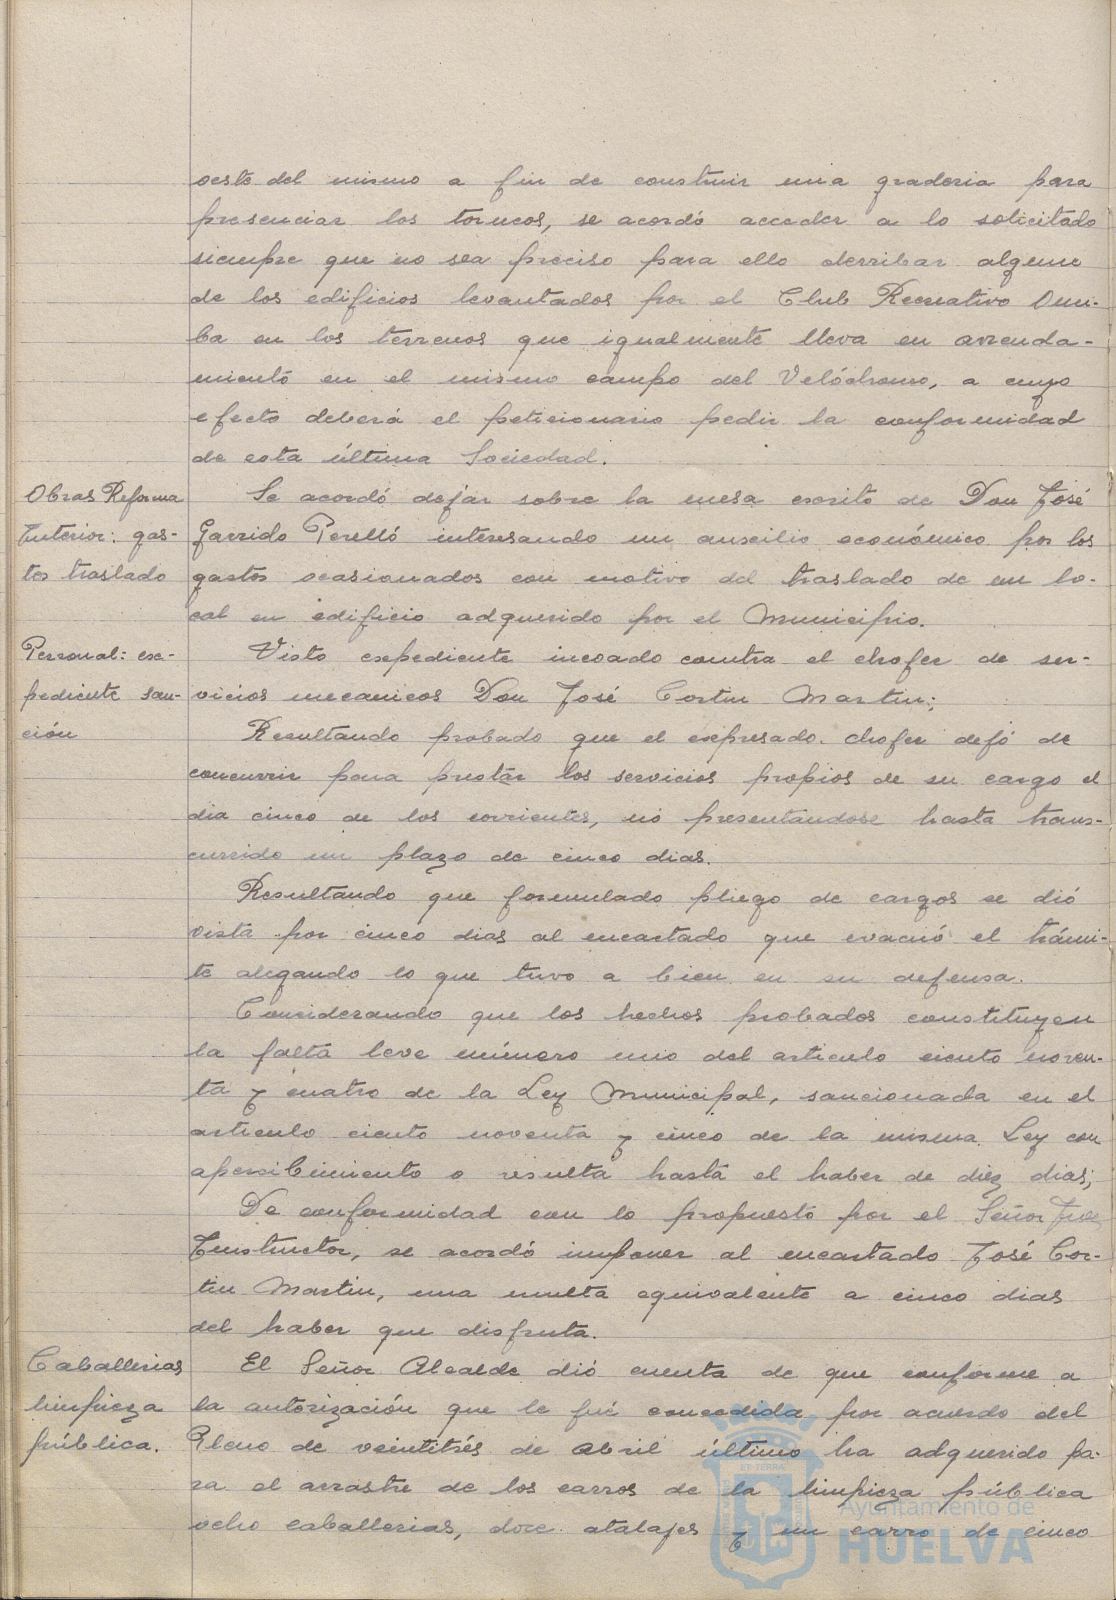 oeste del mismo a fin de construir una graderia para
presenciar los torneos, se acordó acceder a lo solicitado
siempre que no sea preciso para ello derribar alguno
de los edificios levantados por el Club Recreativo Onu-
ba en los terrenos que igualmente lleva en arrenda-
miento en el mismo campo del Velódromo, a cuyo
efecto deberá el peticionario pedir la conformidad
de esta última Sociedad.
Obras Reforma
Interior: gas-
tos traslado
Se acordó dejar sobre la mesa escrito de Don José
Garrido Perelló interesando un auxilio económico por los
gastos ocasionados con motivo del traslado de un lo-
cal en edificio adquerido por el Municipio.
Personal: ex-
pediente san-
ción
Visto expediente incoado contra el chofer de ser-
vicios mecanicos Don José Cortin Martin;
Resultando probado que el expresado chofer dejó de
concurrir para prestar los servicios propios de su cargo el
dia cinco de los corrientes, no presentandose hasta trans-
currido un plazo de cinco dias.
Resultando que formulado pliego de cargos se dió
vista por cinco dias al encartado que evacuó el trámi-
te alegando lo que tuvo a bien en su defensa.
Considerando que los hechos probados constituyen
la falta leve número uno del articulo ciento noven-
ta y cuatro de la Ley Municipal, sancionada en el
articulo ciento noventa y cinco de la misma Ley con
apercibimiento o multa hasta el haber de diez dias;
De conformidad con lo propuesto por el Señor Juez
Instructor, se acordó imponer al encartado José Cor-
tin Martin, una multa equivalente a cinco dias
del haber que disfruta.
Caballerias
limpieza
pública.
El Señor Alcalde dió cuenta de que conforme a
la autorización que le fué concedida por acuerdo del
Pleno de veintitrés de abril último ha adquerido pa-
ra el arrastre de los carros de la limpieza pública
ocho caballerias, doce atalajes y un carro de cinco
Ayuntamiento de
HUELVA